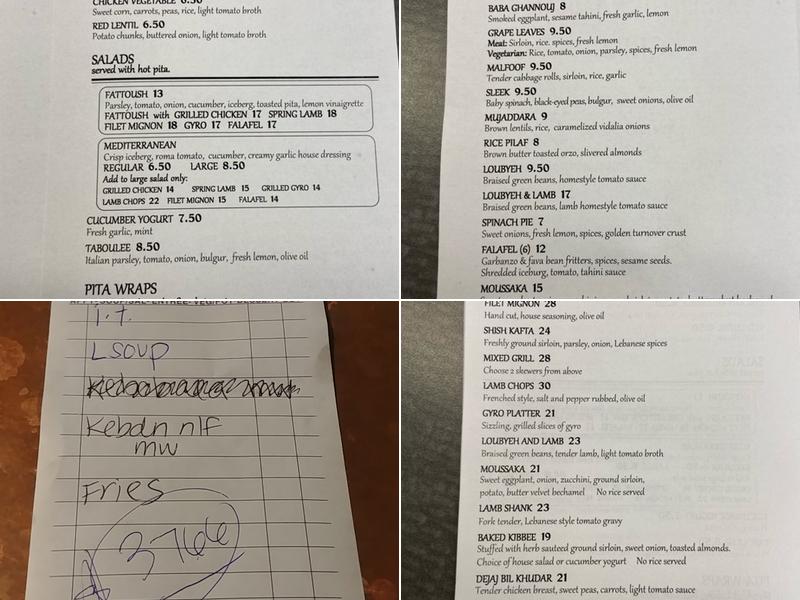 CHICKEN VEGETABLE 6.50
Sweet corn, carrots, peas, rice, light tomato broth
RED LENTIL 6.50
Potato chunks, buttered onion, light tomato broth
SALADS
served with hot pita.
FATTOUSH 13
Parsley, tomato, onion, cucumber, iceberg, toasted pita, lemon vinaigrette
FATTOUSH with GRILLED CHICKEN 17 SPRING LAMB 18
FILET MIGNON 18 GYRO 17 FALAFEL 17
MEDITERRANEAN
Crisp iceberg, roma tomato, cucumber, creamy garlic house dressing
REGULAR 6.50 LARGE 8.50
Add to large salad only:
GRILLED CHICKEN 14 SPRING LAMB 15 GRILLED GYRO 14
LAMB CHOPS 22 FILET MIGNON 15 FALAFEL 14
CUCUMBER YOGURT 7.50
Fresh garlic, mint
TABOULEE 8.50
Italian parsley, tomato, onion, bulgur, fresh lemon, olive oil
PITA WRAPS
BABA GHANNOUJ 8
Smoked eggplant, sesame tahini, fresh garlic, lemon
GRAPE LEAVES 9.50
Meat: Sirloin, rice. spices, fresh lemon
Vegetarian: Rice, tomato, onion, parsley, spices, fresh lemon
MALFOOF 9.50
Tender cabbage rolls, sirloin, rice, garlic
SLEEK 9.50
Baby spinach, black-eyed peas, bulgur, sweet onions, olive oil
MUJADDARA 9
Brown lentils, rice, caramelized vidalia onions
RICE PILAF 8
Brown butter toasted orzo, slivered almonds
LOUBYEH 9.50
Braised green beans, homestyle tomato sauce
LOUBYEH & LAMB 17
Braised green beans, lamb homestyle tomato sauce
SPINACH PIE 7
Sweet onions, fresh lemon, spices, golden turnover crust
FALAFEL (6) 12
Garbanzo & fava bean fritters, spices, sesame seeds.
Shredded iceburg, tomato, tahini sauce
MOUSSAKA 15
I.T.
L SOUP
Fries
$ 37.66
FILET MIGNON 28
Hand cut, house seasoning, olive oil
SHISH KAFTA 24
Freshly ground sirloin, parsley, onion, Lebanese spices
MIXED GRILL 28
Choose 2 skewers from above
LAMB CHOPS 30
Frenched style, salt and pepper rubbed, olive oil
GYRO PLATTER 21
Sizzling, grilled slices of gyro
LOUBYEH AND LAMB 23
Braised green beans, tender lamb, light tomato broth
MOUSSAKA 21
Sweet eggplant, onion, zucchini, ground sirloin,
potato, butter velvet bechamel No rice served
LAMB SHANK 23
Fork tender, Lebanese style tomato gravy
BAKED KIBBEE 19
Stuffed with herb sauteed ground sirloin, sweet onion, toasted almonds.
Choice of house salad or cucumber yogurt No rice served
DEJAJ BIL KHUDAR 21
Tender chicken breast, sweet peas, carrots, light tomato sauce